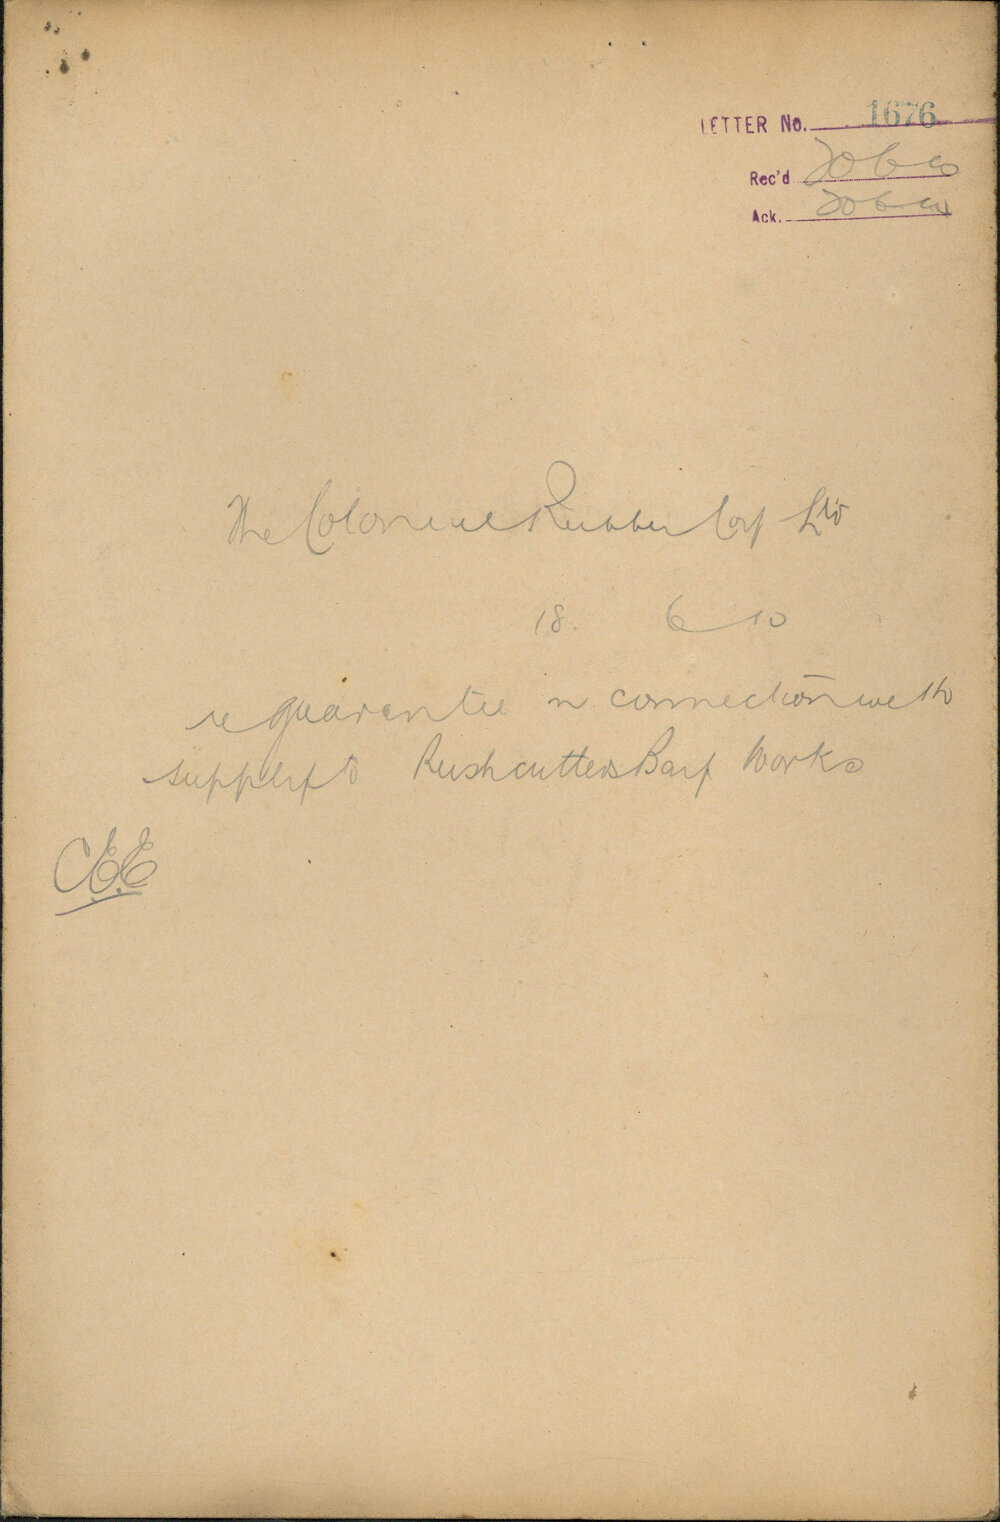 LETTER No. 1676
Rec'd 20 6 10
Ack. 20 6 10
The Colonial Rubber Coy Ltd
18. 6 10
re guarantee in connection with
supply to Rushcutters Bay Works
C.E.E